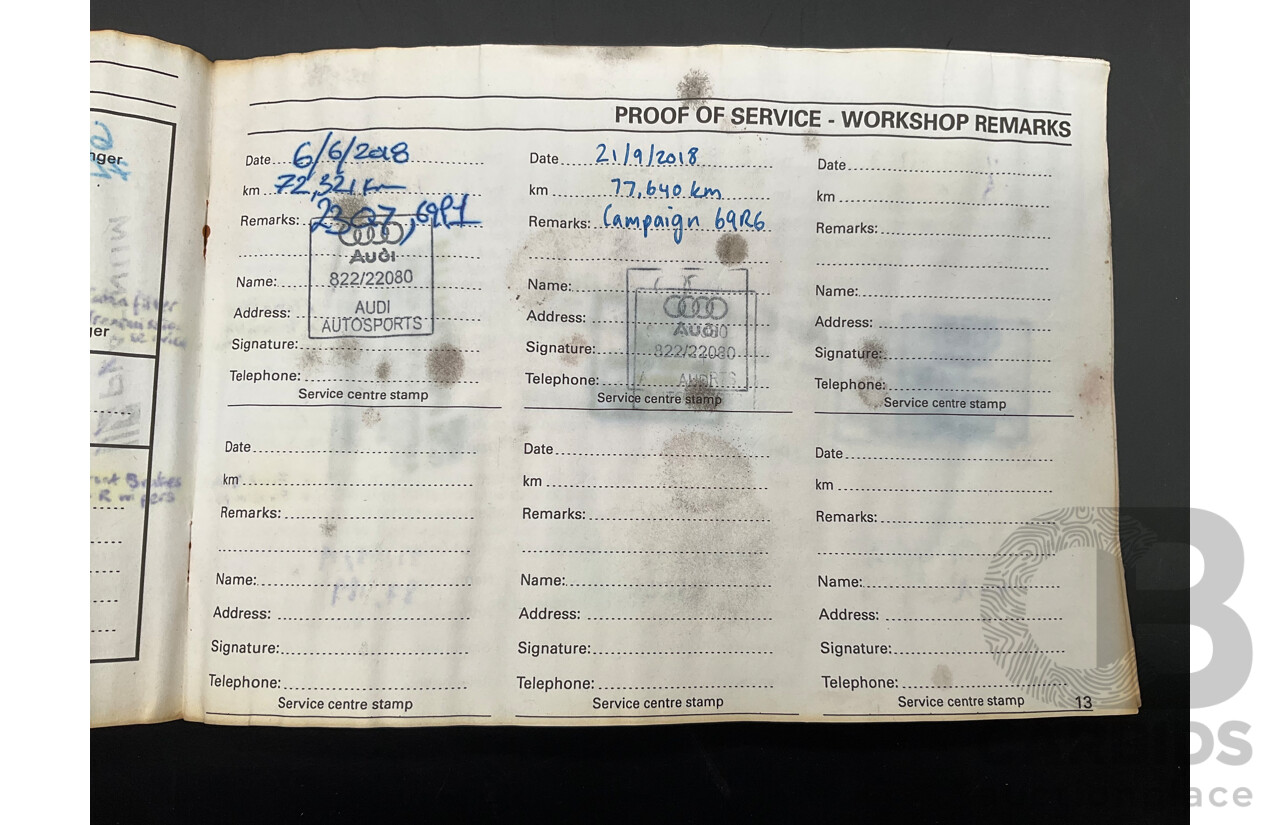 PROOF OF SERVICE - WORKSHOP REMARKS
Date 6/6/2018
km 72,321 km
Remarks: 2307, 69P1
AUDI
822/22080
AUDI
AUTOSPORTS
Name:
Address:
Signature:
Telephone:
Service centre stamp
Date 21/9/2018
km 77,640 km
Remarks: Campaign 69R6
Name:
Address:
AUDI
Signature: 822/22080
Telephone:
Service centre stamp
Date
km
Remarks:
Name:
Address:
Signature:
Telephone:
Service centre stamp
Date
km
Remarks:
Name:
Address:
Signature:
Telephone:
Service centre stamp
Date
km
Remarks:
Name:
Address:
Signature:
Telephone:
Service centre stamp
Date
km
Remarks:
Name:
Address:
Signature:
Telephone:
Service centre stamp
13